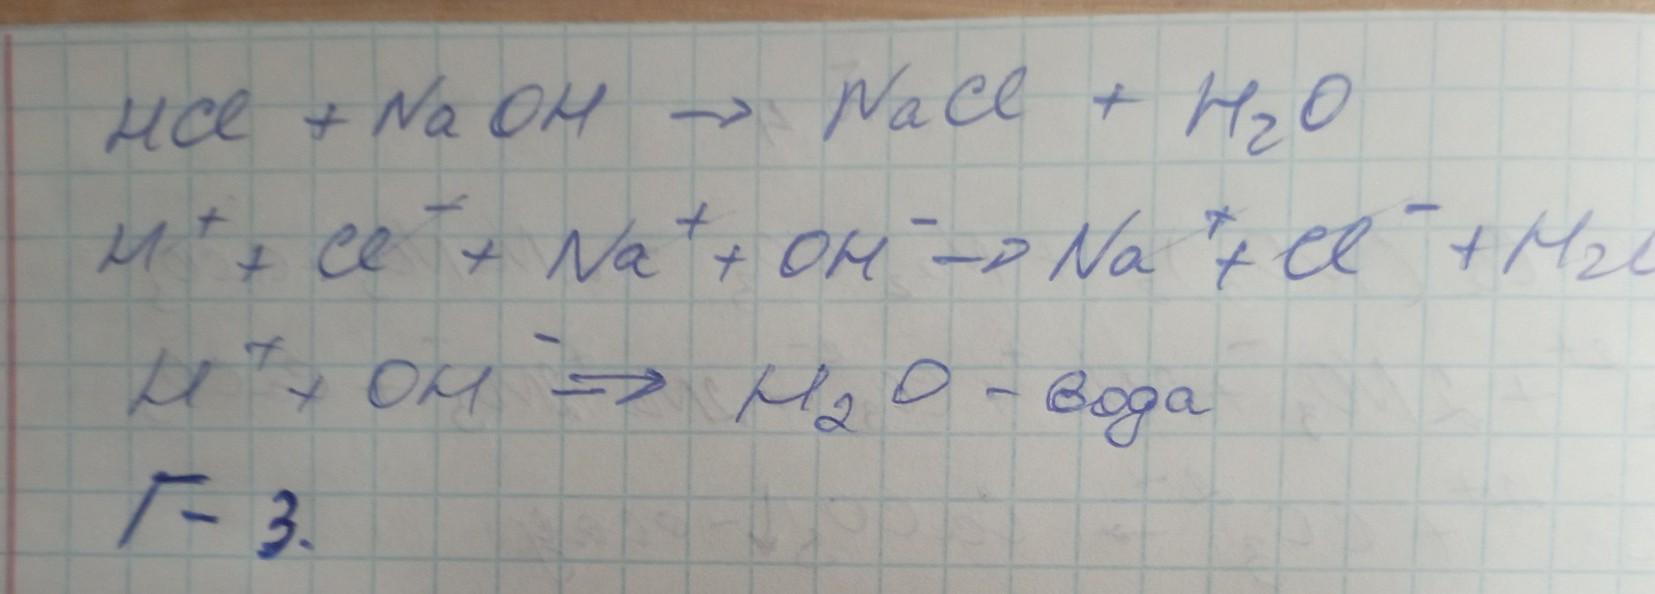 HCl + NaOH → NaCl + H₂O
H⁺ + Cl⁻ + Na⁺ + OH⁻ → Na⁺ + Cl⁻ + H₂O
H⁺ + OH⁻ ⇒ H₂O - вода
Г - 3.